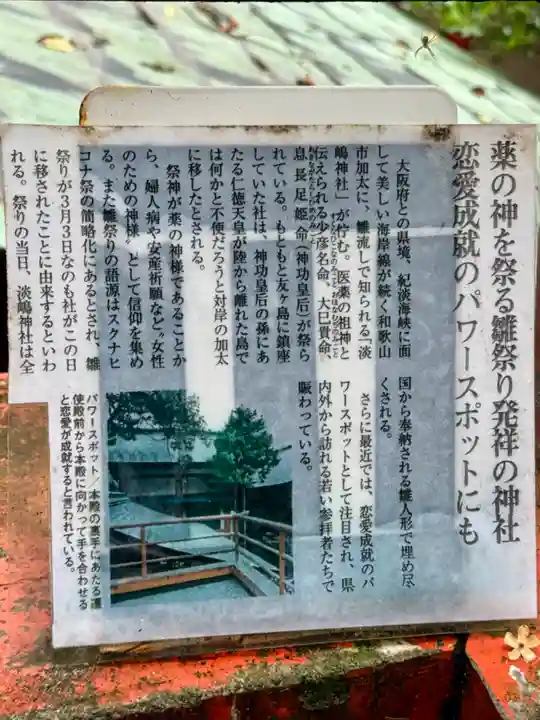 薬の神を祭る雛祭り発祥の神社
恋愛成就のパワースポットにも
大阪府との県境、紀淡海峡に面
して美しい海岸線が続く和歌山
市加太に、雛流しで知られる「淡
嶋神社」が佇む。医薬の祖神と
伝えられる少彦名命、大己貴命、
息長足姫命（神功皇后）が祭ら
れている。もともと友ヶ島に鎮座
していた社は、神功皇后の孫にあ
たる仁徳天皇が陸から離れた島で
は何かと不便だろうと対岸の加太
に移したとされる。
祭神が薬の神様であることか
ら、婦人病や安産祈願など〝女性
のための神様〟として信仰を集め
る。また雛祭りの語源はスクナヒ
コナ祭の簡略化にあるとされ、雛
祭りが３月３日なのも社がこの日
に移されたことに由来するといわ
れる。祭りの当日、淡嶋神社は全
国から奉納される雛人形で埋め尽
くされる。
さらに最近では、恋愛成就のパ
ワースポットとして注目され、県
内外から訪れる若い参拝者たちで
賑わっている。
パワースポット／本殿の裏手にあたる遷
使殿前から本殿に向かって手を合わせる
と恋愛が成就すると言われている。